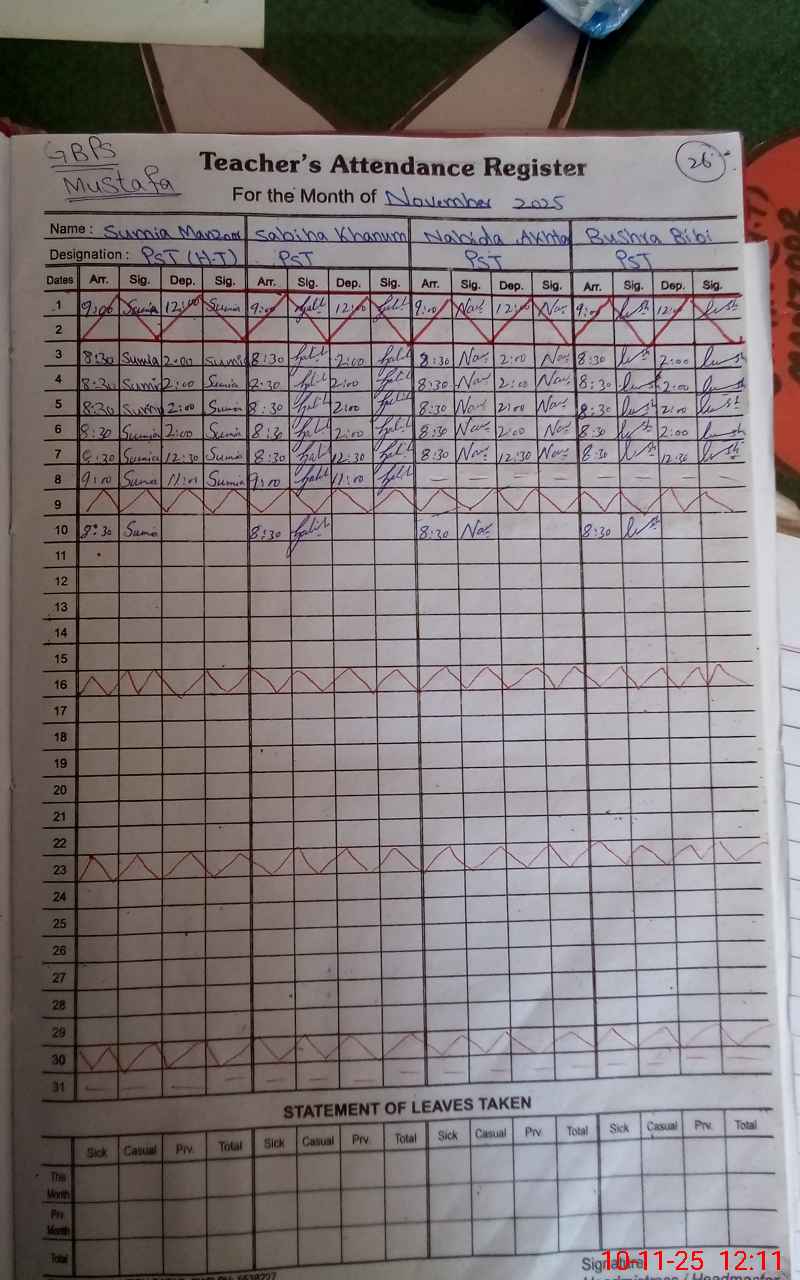 GBPS
Mustafa
Teacher's Attendance Register
26
For the Month of November 2025
Name : Sumia Manzoor Sabiha Khanum Nahida Akhtar Bushra Bibi
Designation : PST (H.T) PST PST PST
Dates Arr. Sig. Dep. Sig. Arr. Sig. Dep. Sig. Arr. Sig. Dep. Sig. Arr. Sig. Dep. Sig.
1 9:00 Sumia 12:00 Sumia 9:00 12:00 9:00 Nas 12:00 Nas 9:00 12:00
2
3 8:30 Sumia 2:00 Sumia 8:30 2:00 8:30 Nas 2:00 Nas 8:30 2:00
4 8:30 Sumia 2:00 Sumia 8:30 2:00 8:30 Nas 2:00 Nas 8:30 2:00
5 8:30 Sumia 2:00 Sumia 8:30 2:00 8:30 Nas 2:00 Nas 8:30 2:00
6 8:30 Sumia 2:00 Sumia 8:30 2:00 8:30 Nas 2:00 Nas 8:30 2:00
7 8:30 Sumia 12:30 Sumia 8:30 12:30 8:30 Nas 12:30 Nas 8:30 12:30
8 9:00 Sumia 11:00 Sumia 9:00 11:00 — — — — — — — —
9
10 8:30 Sumia 8:30 8:30 Nas 8:30
11
12
13
14
15
16
17
18
19
20
21
22
23
24
25
26
27
28
29
30
31
STATEMENT OF LEAVES TAKEN
Sick Casual Prv. Total Sick Casual Prv. Total Sick Casual Prv. Total Sick Casual Prv. Total
This Month
Prv. Month
Total
Signature
10-11-25 12:11